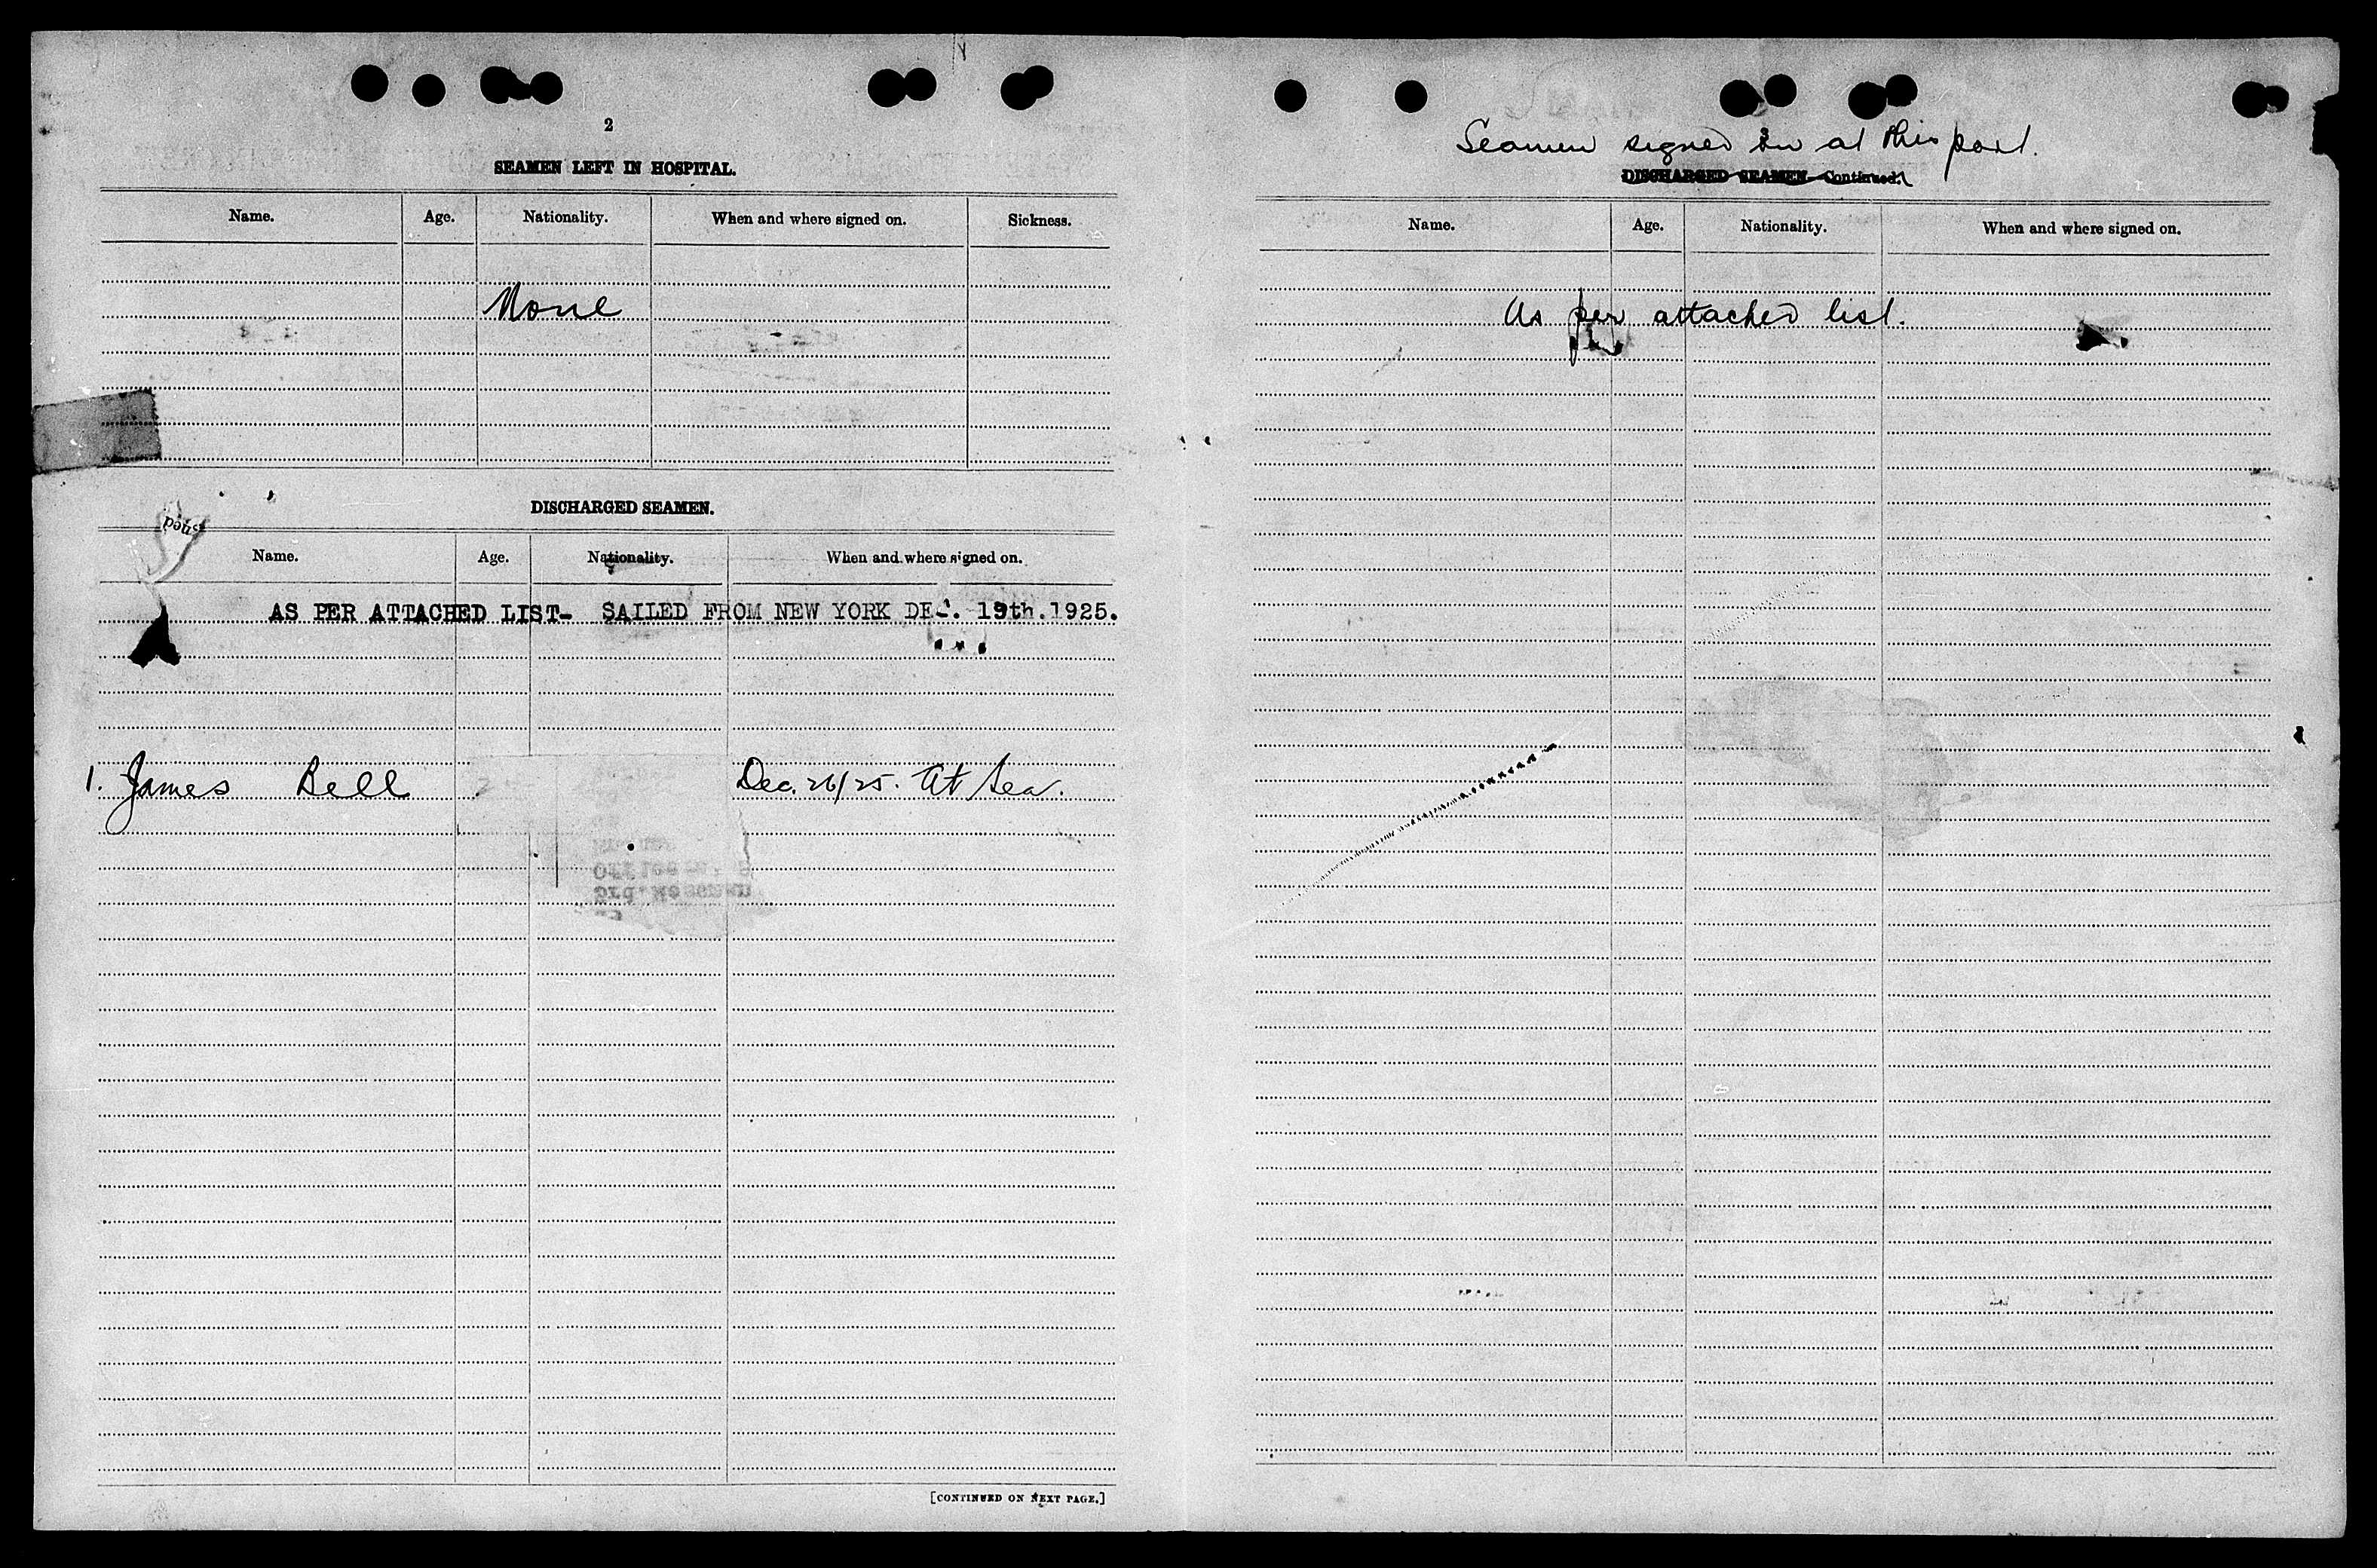 2
SEAMEN LEFT IN HOSPITAL.
Name. Age. Nationality. When and where signed on. Sickness.
None
DISCHARGED SEAMEN.
Name. Age. Nationality. When and where signed on.
AS PER ATTACHED LIST- SAILED FROM NEW YORK DEC. 19th.1925.
1. James Bell Dec. 26/25. At Sea.
[CONTINUED ON NEXT PAGE.]
Seamen signed on at this port.
DISCHARGED SEAMEN—Continued.
Name. Age. Nationality. When and where signed on.
As per attached list.